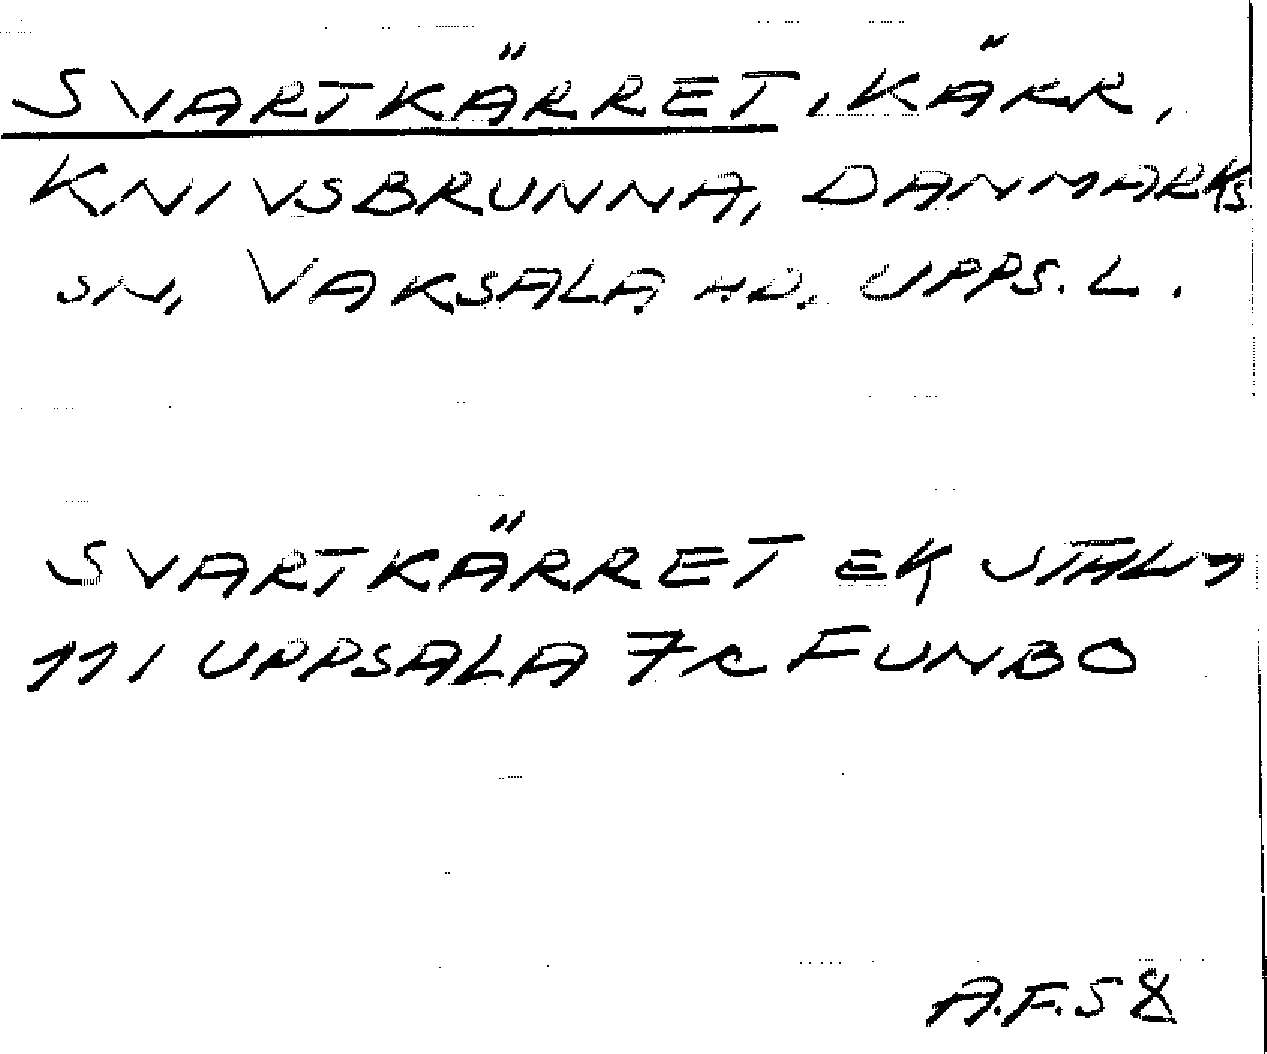 SVARTKÄRRET, KÄRR,
KNIVSBRUNNA, DANMARKS
SN, VAKSALA HD. UPPS. L.
SVARTKÄRRET EK STHLM
111 UPPSALA 7c FUNBO
A.F. 58